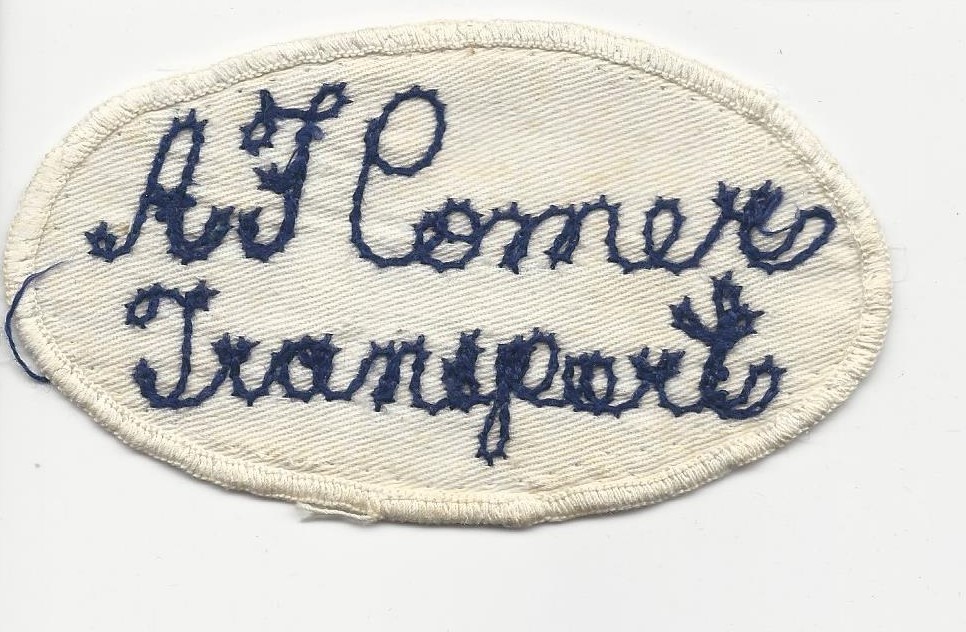 A J Comer
Transport